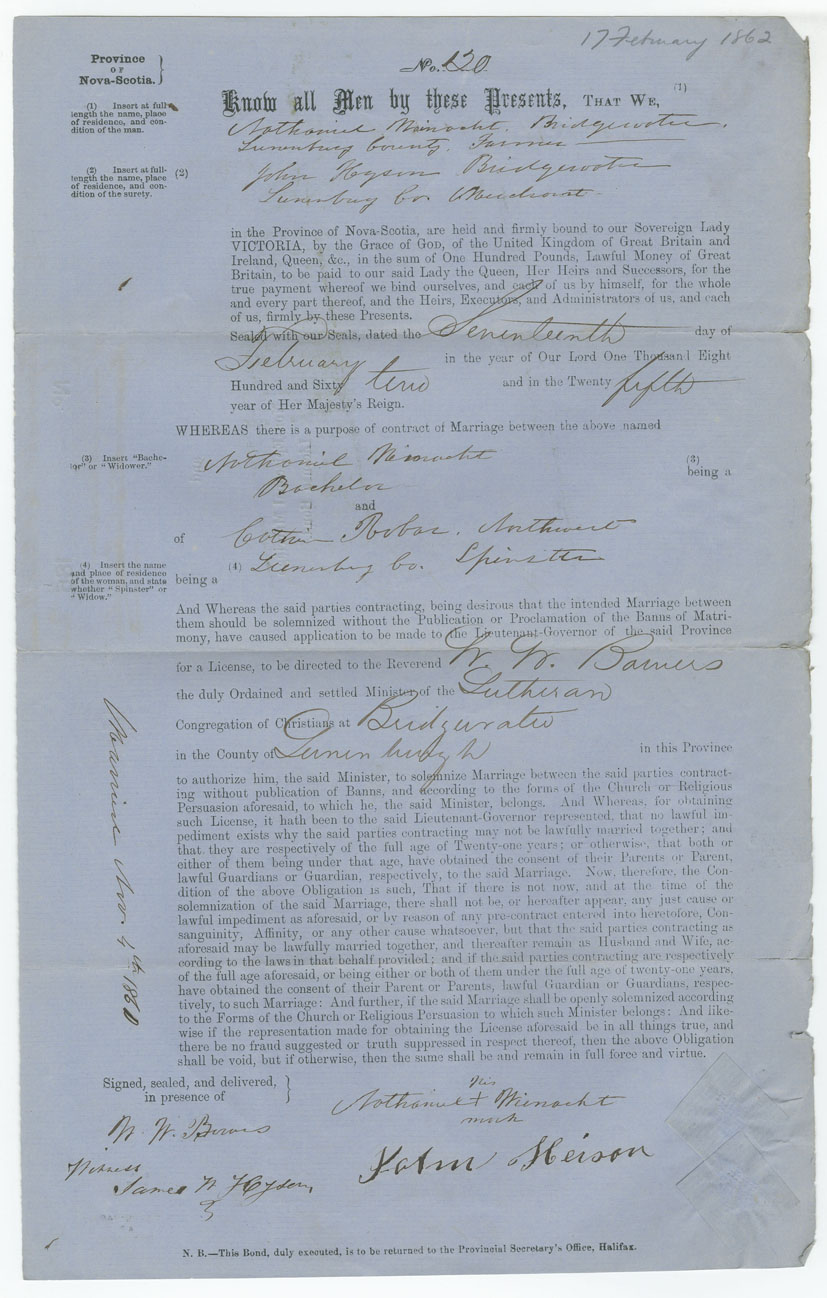 17 February 1862
Province
OF
Nova-Scotia.
No. 120
(1) Insert at full-
length the name, place
of residence, and con-
dition of the man.
Know all Men by these Presents, THAT WE, (1)
Nathaniel Weinacht, Bridgewater,
Lunenburg County, Farmer
(2) Insert at full-
length the name, place
of residence, and con-
dition of the surety.
(2)
John Hyson Bridgewater
Lunenburg Co. Merchant
in the Province of Nova-Scotia, are held and firmly bound to our Sovereign Lady
VICTORIA, by the Grace of GOD, of the United Kingdom of Great Britain and
Ireland, Queen, &c., in the sum of One Hundred Pounds, Lawful Money of Great
Britain, to be paid to our said Lady the Queen, Her Heirs and Successors, for the
true payment whereof we bind ourselves, and each of us by himself, for the whole
and every part thereof, and the Heirs, Executors, and Administrators of us, and each
of us, firmly by these Presents.
Sealed with our Seals, dated the Seventeenth day of
February in the year of Our Lord One Thousand Eight
Hundred and Sixty two and in the Twenty fifth
year of Her Majesty's Reign.
WHEREAS there is a purpose of contract of Marriage between the above named
(3) Insert "Bache-
lor" or "Widower."
Nathaniel Weinacht (3)
being a
Bachelor
and
of Robar, Northwest
(4) Insert the name
and place of residence
of the woman, and state
whether "Spinster" or
"Widow."
being a (4) Lunenburg Co. Spinster
And Whereas the said parties contracting, being desirous that the intended Marriage between
them should be solemnized without the Publication or Proclamation of the Banns of Matri-
mony, have caused application to be made to the Lieutenant-Governor of the said Province
for a License, to be directed to the Reverend W. W. Bowers
the duly Ordained and settled Minister of the Lutheran
Congregation of Christians at Bridgewater
in the County of Lunenburgh in this Province
to authorize him, the said Minister, to solemnize Marriage between the said parties contract-
ing without publication of Banns, and according to the forms of the Church or Religious
Persuasion aforesaid, to which he, the said Minister, belongs. And Whereas, for obtaining
such License, it hath been to the said Lieutenant-Governor represented, that no lawful im-
pediment exists why the said parties contracting may not be lawfully married together; and
that they are respectively of the full age of Twenty-one years; or otherwise, that both or
either of them being under that age, have obtained the consent of their Parents or Parent,
lawful Guardians or Guardian, respectively, to the said Marriage. Now, therefore, the Con-
dition of the above Obligation is such, That if there is not now, and at the time of the
solemnization of the said Marriage, there shall not be, or hereafter appear, any just cause or
lawful impediment as aforesaid, or by reason of any pre-contract entered into heretofore, Con-
sanguinity, Affinity, or any other cause whatsoever, but that the said parties contracting as
aforesaid may be lawfully married together, and thereafter remain as Husband and Wife, ac-
cording to the laws in that behalf provided; and if the said parties contracting are respectively
of the full age aforesaid, or being either or both of them under the full age of twenty-one years,
have obtained the consent of their Parent or Parents, lawful Guardian or Guardians, respec-
tively, to such Marriage: And further, if the said Marriage shall be openly solemnized according
to the Forms of the Church or Religious Persuasion to which such Minister belongs: And like-
wise if the representation made for obtaining the License aforesaid be in all things true, and
there be no fraud suggested or truth suppressed in respect thereof, then the above Obligation
shall be void, but if otherwise, then the same shall be and remain in full force and virtue.
Married Nov. 4th 1860
Signed, sealed, and delivered,
in presence of
W. W. Bowers
Witness
James W Hyson
his
Nathaniel + Wienacht
mark
John Heison
N. B.—This Bond, duly executed, is to be returned to the Provincial Secretary's Office, Halifax.